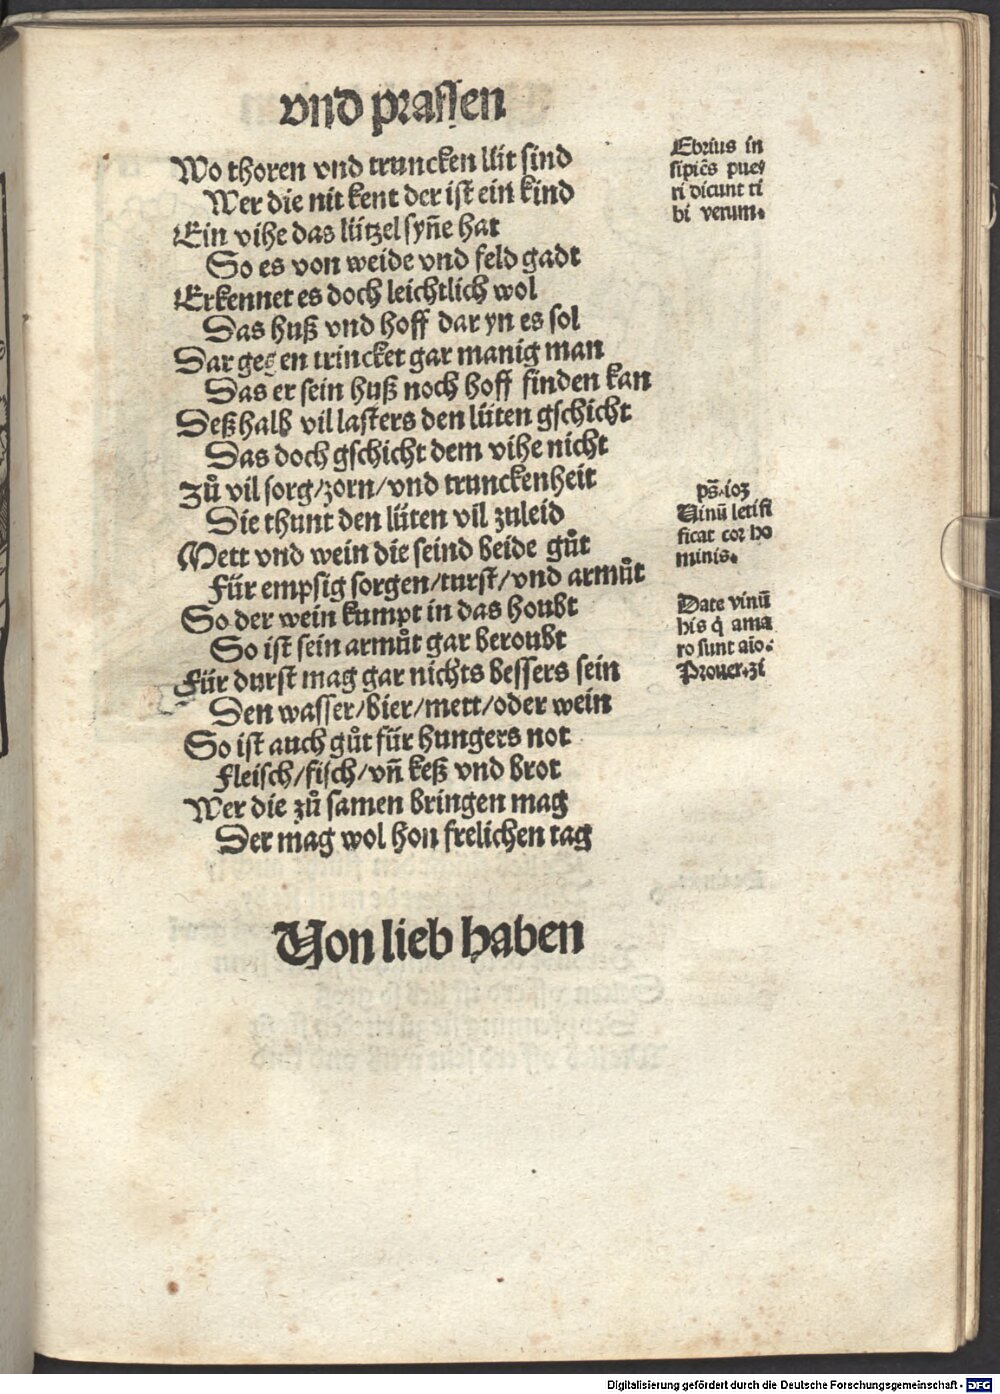 vnd prassen
Wo thoren vnd truncken lüt sind
Wer die nit kent der ist ein kind
Ein vihe das lützel syñe hat
So es von weide vnd feld gadt
Erkennet es doch leichtlich wol
Das huß vnd hoff dar yn es sol
Dar gegen trincket gar manig man
Das er sein huß noch hoff finden kan
Deßhalb vil lasters den lüten gschicht
Das doch gschicht dem vihe nicht
Zů vil sorg/zorn/vnd trunckenheit
Die thunt den lüten vil zuleid
Mett vnd wein die seind beide gůt
Für empsig sorgen/turst/vnd armůt
So der wein kumpt in das houbt
So ist sein armůt gar beroubt
Für durst mag gar nichts bessers sein
Den wasser/bier/mett/oder wein
So ist auch gůt für hungers not
Fleisch/fisch/vñ keß vnd brot
Wer die zů samen bringen mag
Der mag wol hon frelichen tag
Ebrius in
sipiẽs pue
ri dicunt ti
bi verum.
ps̃.ioz
Uinũ letifi
ficat cor ho
minis.
Date vinũ
his q̃ ama
ro sunt aĩo.
Prouer.zi
Von lieb haben
Digitalisierung gefördert durch die Deutsche Forschungsgemeinschaft - DFG